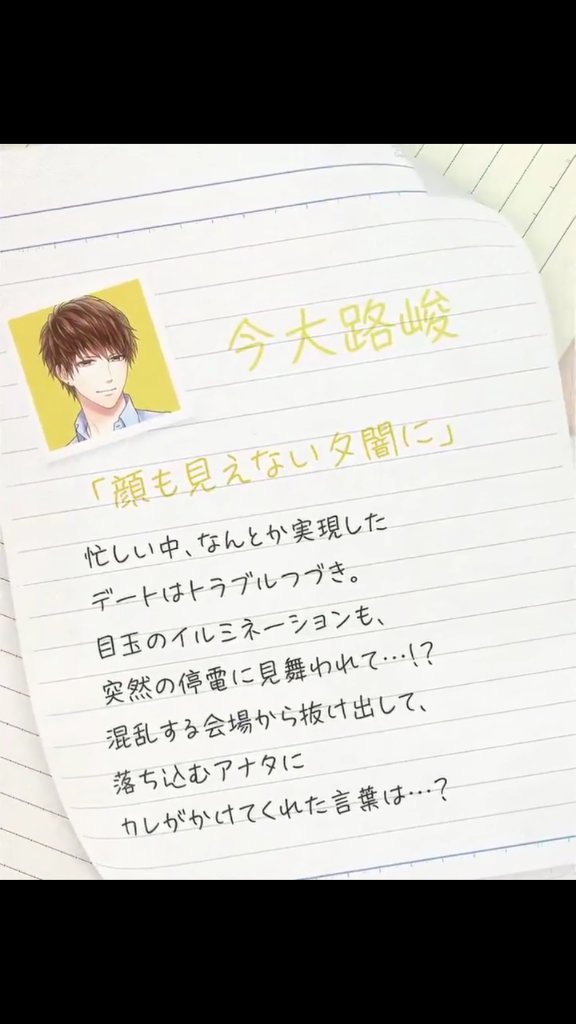 今大路峻
「顔も見えない夕闇に」
忙しい中、なんとか実現した
デートはトラブルつづき。
目玉のイルミネーションも、
突然の停電に見舞われて…!?
混乱する会場から抜け出して、
落ち込むアナタに
カレがかけてくれた言葉は…?